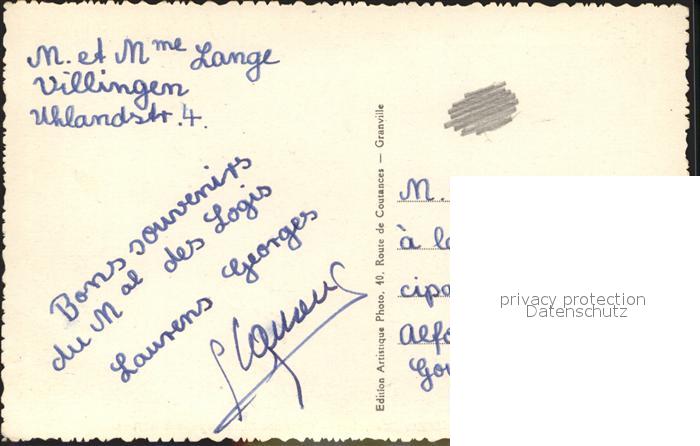 M. et Mme Lange
Villingen
Uhlandstr. 4.
Bons souvenirs
du M al des Logis
Laurens Georges
Edition Artistique Photo, 40, Route de Coutances — Granville
M.
à
privacy protection
Datenschutz